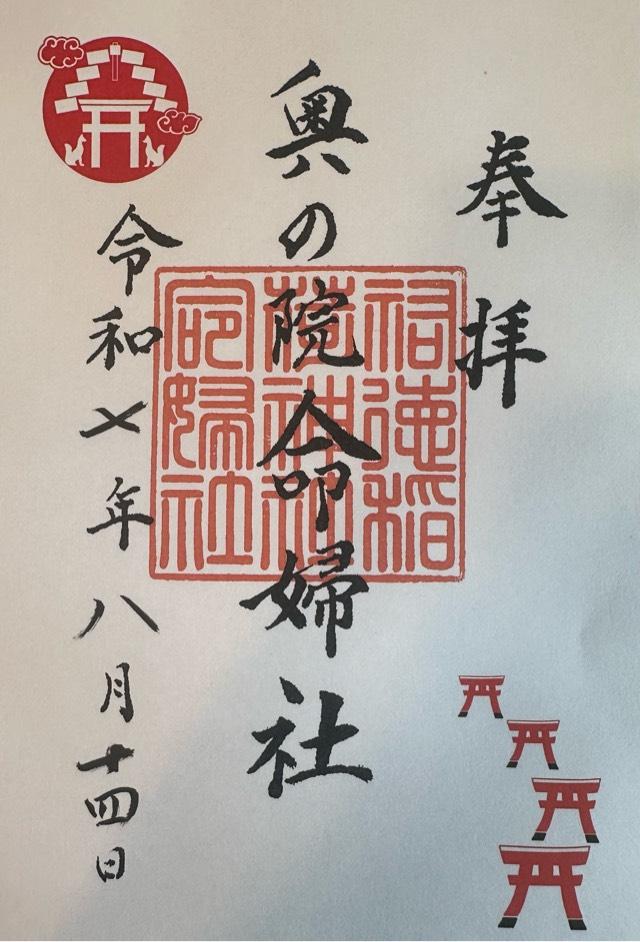 奉拝
奥の院命婦社
令和七年八月十四日
祐徳稲
荷神社
命婦社